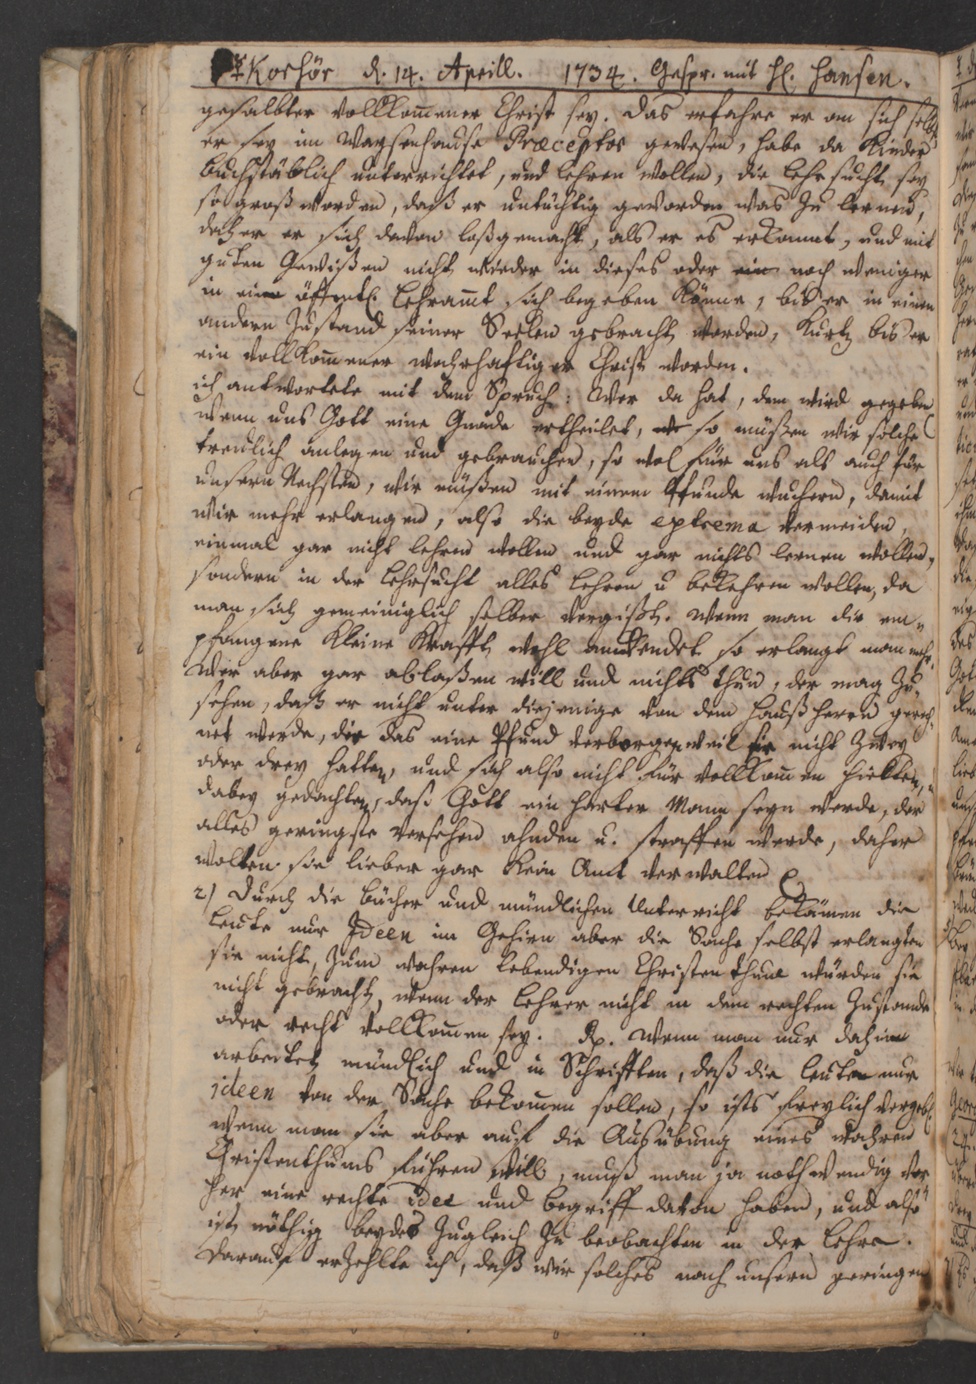 Korsör d. 14. Aprill. 1734. Gespr. mit H. Hansen.
gesalbter vollkom̄ener Christ sey. Das erfahre er an sich selbst
er sey im Waysenhause Præceptor gewesen, habe da Kinder
buchstäblich unterrichtet, und lehren wollen, die Lehrsucht sey
so groß worden, daß er untüchtig geworden was zu lernen,
daher er sich davon loßgemacht, als er es erkannt, und mit
guten Gewißen nicht wieder in dieses oder noch weniger
in ein öffentl. Lehramt sich begeben könne, bis er in einen
andern Zustand seiner Seelen gebracht worden, kurtz bis er
ein vollkom̄ener wahrhafftiger Christ worden.
ich antwortete mit dem Spruch: Wer da hat, dem wird gegeben
wenn uns Gott eine Gnade ertheilet, so müßen wir solche
treulich anlegen und gebrauchen, so wol für uns als auch für
unsern Nechsten, wir müßen mit einem Pfunde wuchern, damit
wir mehr erlangen, also die beyde extrema vermeiden,
einmal gar nicht lehren wollen und gar nichts lernen wollen,
sondern in der Lehrsucht alles lehren u bekehren wollen, da
man sich gemeiniglich selber vergißt. Wenn man die em„
pfangene kleine Krafft wohl anwendet so erlangt man mehr.
Wer aber gar ablaßen will und nichts thun, der mag zu„
sehen, daß er nicht unter diejenige von dem Haußherrn gerech„
net werde, die das eine Pfund verborgen weil sie nicht zwey
oder drey hatten, und sich also nicht für vollkom̄en hielten,
dabey gedachten, daß Gott ein harter Mann seyn werde, der
alles geringste versehen ahnden u. straffen werde, daher
wolten sie lieber gar kein Amt verwalten
2) Durch die bücher und mündlichen Unterricht bekämen die
Leute nur Ideen im Gehirn aber die Sache selbst erlangten
sie nicht, zum wahren lebendigen Christenthum würden sie
nicht gebracht, wenn der Lehrer nicht in dem rechten Zustande
oder recht vollkom̄en sey. Rp. Wenn man nur dahin
arbeitet mündlich und in Schrifften, daß die Leute nur
ideen von der Sache bekom̄en sollen, so ists freylich vergebl.
wenn man sie aber auf die Ausübung eines wahren
Christenthums führen will, muß man ja nothwendig vor
her eine rechte idee und begriff davon haben, und also
ists nöthig beydes zugleich zu beobachten in der Lehre.
Darauf erzehlte ich, daß wir solches nach unsern geringen